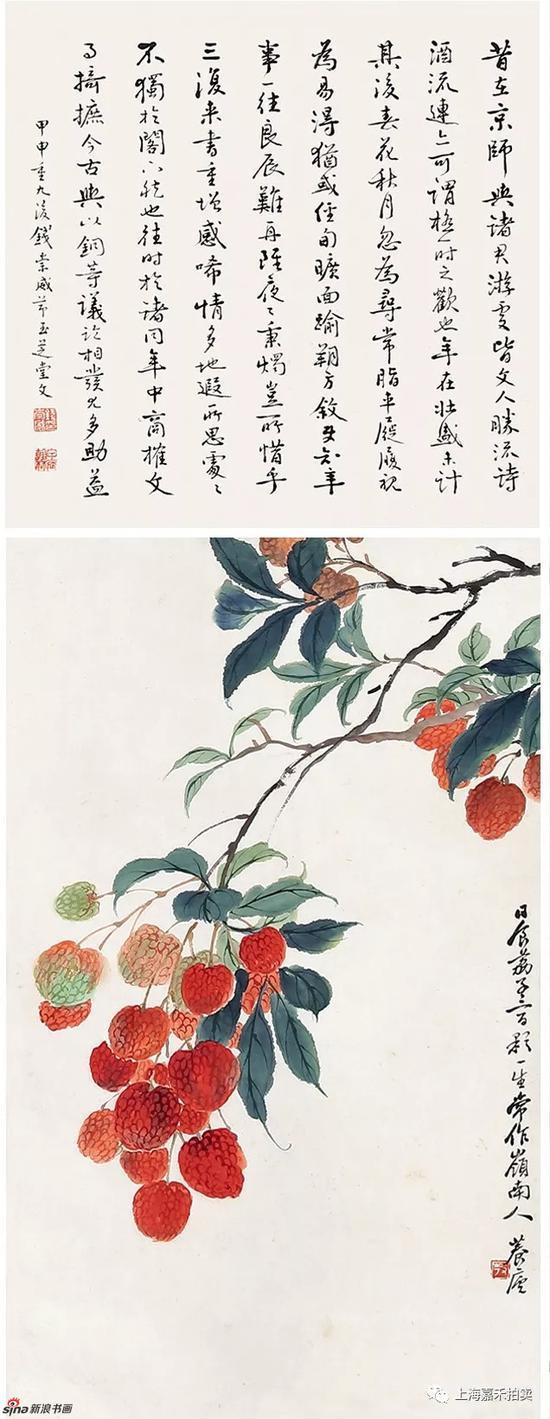 昔在京師與諸君游處皆文人勝流詩
酒流連亦可謂極一時之歡也年在壯盛未計
其後春花秋月忽為尋常脂車躡履視
為易得猶或經旬曠面踰朔方敘知年
事一往良辰難再夜〻秉燭豈所惜乎
三復來書重增感唏情多地遐所思處〻
不獨於閣下然也往時於諸同年中商榷文
事掎摭今古與以銅等議論相發尤多助益
甲申重九後錢崇威節玉芝堂文
日食荔子三百顆一生常作嶺南人
養廬
sina新浪书画
上海嘉禾拍卖